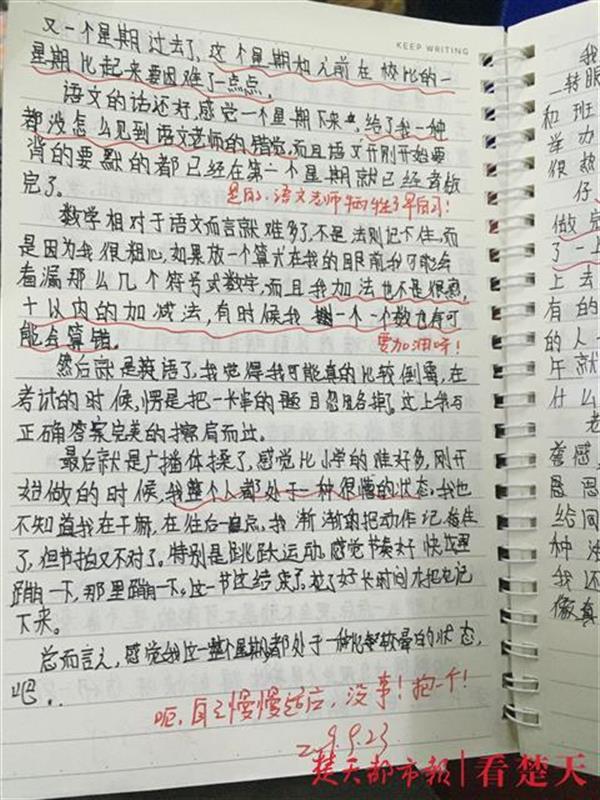 KEEP WRITING
又一个星期过去了,这个星期和之前在校比的一
星期比起来要困难了一点点。
语文的话还好,感觉一个星期下来,给了我一种
都没怎么见到语文老师的错觉,而且语文开刚开始要
背的要默的都已经在第一个星期就已经老板
完了。
是的,语文老师牺牲了早自习!
数学相对于语文而言就难多了,不是法则记不住,而
是因为我很粗心,如果放一个算式在我的眼前我可能会
看漏那么几个符号式数字,而且我加法也不是很熟,
十以内的加减法,有时候我一个一个数也有可
能会算错。
要加油呀!
然后就是英语了,我觉得我可能真的比较倒霉,在
考试的时候,愣是把一长串的题目忽略掉了。这上我与
正确答案完美的擦肩而过。
最后就是广播体操了,感觉比小学的难好多,刚开
始做的时候,我整个人都处于一种很懵的状态,我也
不知道我在干嘛,在往后一点,我渐渐的把动作记
了,但节拍又不对了。特别是跳跃运动,感觉节奏好快这里
蹦一下,那里蹦一下,这一节这结束了,花了好长时间才把它记
下来。
总而言之,感觉我这一整个星期都处于一种比较晕的状态,
吧..
呃,自己慢慢适应,没事!抱一个!
9.23
我
一转眼
和班
举办
很热
仔
做完
了一
上去
有的
的人
午就
什么
老
袭感
愚思
给同
种
我还
傲真
楚天都市报|看楚天